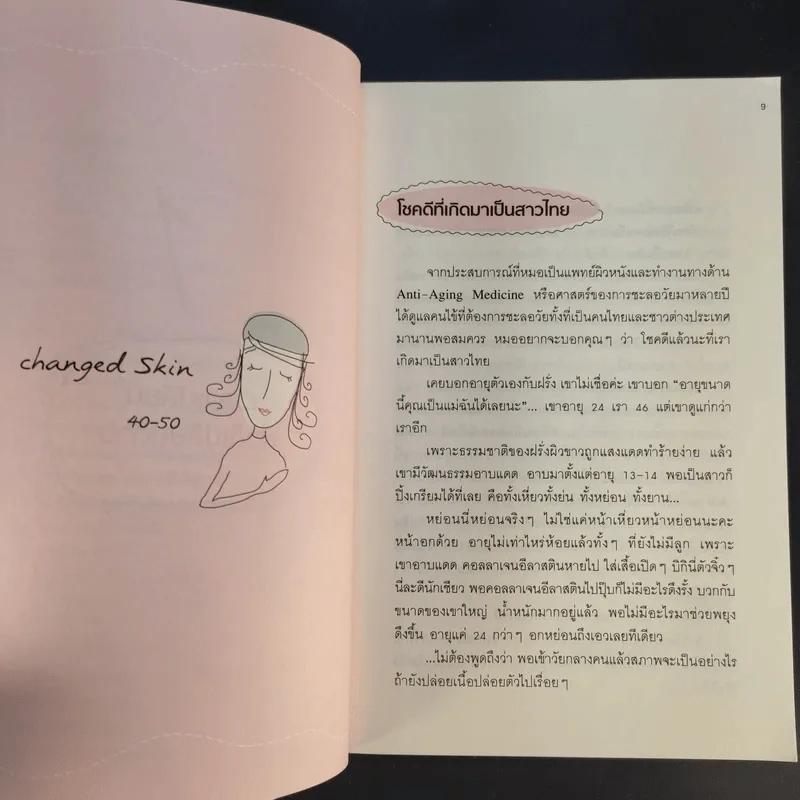 changed Skin
40-50
9
โชคดีที่เกิดมาเป็นสาวไทย
จากประสบการณ์ที่หมอเป็นแพทย์ผิวหนังและทำงานทางด้าน
Anti-Aging Medicine หรือศาสตร์ของการชะลอวัยมาหลายปี
ได้ดูแลคนไข้ที่ต้องการชะลอวัยทั้งที่เป็นคนไทยและชาวต่างประเทศ
มานานพอสมควร หมออยากจะบอกคุณๆ ว่า โชคดีแล้วนะที่เรา
เกิดมาเป็นสาวไทย
เคยบอกอายุตัวเองกับฝรั่ง เขาไม่เชื่อค่ะ เขาบอก “อายุขนาด
นี้คุณเป็นแม่ฉันได้เลยนะ”... เขาอายุ 24 เรา 46 แต่เขาดูแก่กว่า
เราอีก
เพราะธรรมชาติของฝรั่งผิวขาวถูกแสงแดดทำร้ายง่าย แล้ว
เขามีวัฒนธรรมอาบแดด อาบมาตั้งแต่อายุ 13-14 พอเป็นสาวก็
ปิ้งเกรียมได้ที่เลย คือทั้งเหี่ยวทั้งย่น ทั้งหย่อน ทั้งยาน...
หย่อนนี่หย่อนจริงๆ ไม่ใช่แค่หน้าเหี่ยวหน้าหย่อนนะคะ
หน้าอกด้วย อายุไม่เท่าไหร่ห้อยแล้วทั้งๆ ที่ยังไม่มีลูก เพราะ
เขาอาบแดด คอลลาเจนอีลาสตินหายไป ใส่เสื้อเปิดๆ บิกินี่ตัวจิ๋วๆ
นี่ละดีนักเชียว พอคอลลาเจนอีลาสตินไปปุ๊บก็ไม่มีอะไรดึงรั้ง บวกกับ
ขนาดของเขาใหญ่ น้ำหนักมากอยู่แล้ว พอไม่มีอะไรมาช่วยพยุง
ดึงขึ้น อายุแค่ 24 กว่าๆ อกหย่อนถึงเอวเลยทีเดียว
...ไม่ต้องพูดถึงว่า พอเข้าวัยกลางคนแล้วสภาพจะเป็นอย่างไร
ถ้ายังปล่อยเนื้อปล่อยตัวไปเรื่อยๆ